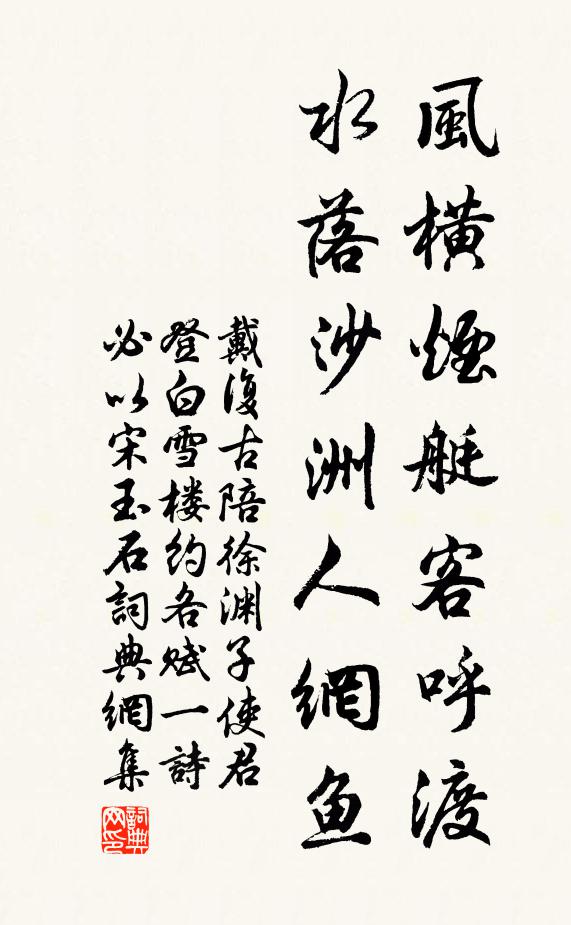 風橫煙艇客呼渡
水落沙洲人網魚
戴復古陪徐淵子使君
登白雪楼約各賦一詩
必以宋玉石詞典網集
詞典
网印